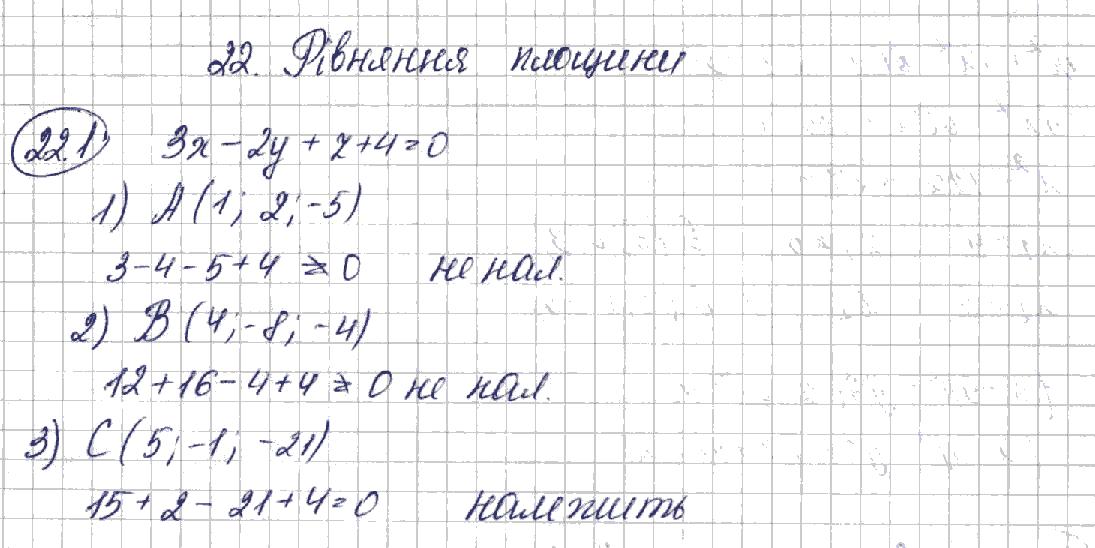 22. Рівняння площини
22.1 3x - 2y + z + 4 = 0
1) A (1; 2; -5)
3 - 4 - 5 + 4 ≠ 0 не нал.
2) B (4; -8; -4)
12 + 16 - 4 + 4 ≠ 0 не нал.
3) C (5; -1; -21)
15 + 2 - 21 + 4 = 0 належить